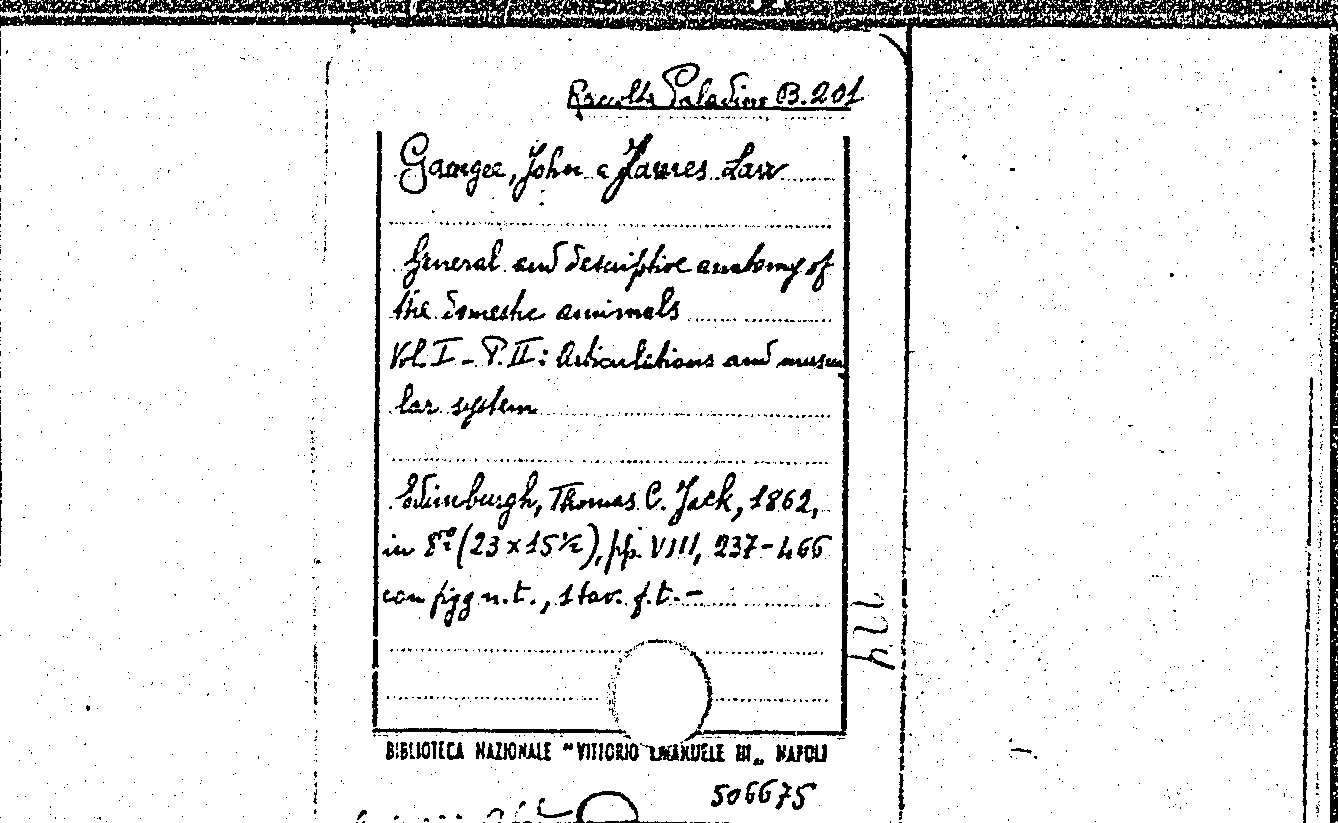 Raccolta Paladino B.201
Gamgee, John e James Law
General and descriptive anatomy of
the domestic animals
Vol. I - P. II: Articulations and muscu
lar system
Edimburgh, Thomas C. Jack, 1862,
in 8° (23 x 15½), pp. VIII, 237-466
con figg n.t., 1 tav. f.t. -
BIBLIOTECA NAZIONALE "VITTORIO EMANUELE III„ NAPOLI
506675